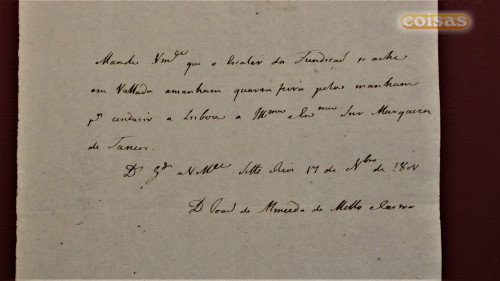 eoisas
Mande Vmce que o Escaler da Fundicaõ se ache
em Vallada amanham quarta feira pela manham
pa conduzir a Lisboa a Illma e Exma Snra Marqueza
de Tancos.
Ds gde a VMce Sette Rios 17 de Nbro de
D. Joaõ de Almeida de Mello e Castro